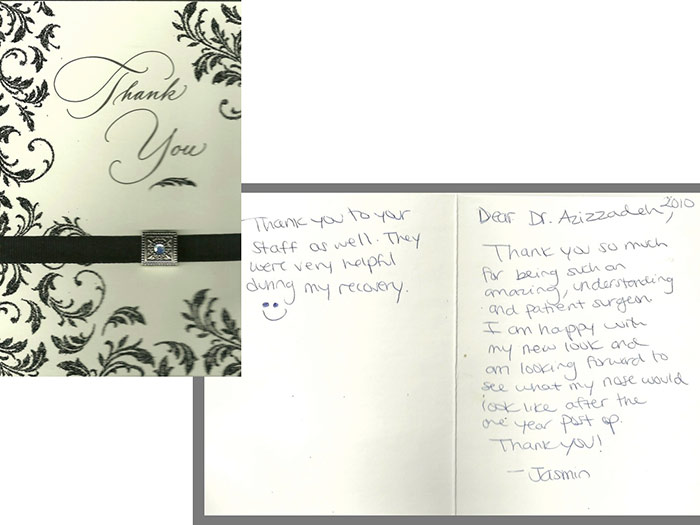 Thank
You
Thank you to your
staff as well. They
were very helpful
during my recovery.
2010
Dear Dr. Azizzadeh,
Thank you so much
for being such an
amazing, understanding
and patient surgeon
I am happy with
my new look and
am looking forward to
see what my nose would
look like after the
one year post op.
Thank you!
- Jasmin